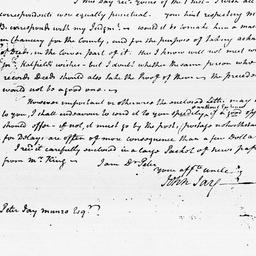 this Day rec'd yours of the Inst. I wish all
correspondents were equally punctual. your hint respecting
B. corresponds with my Judgmt. would it be
Chancery for the County, and for the purpose of taking acknow
of Deeds, in the lower part of it. this I know will not meet wt.
wishes— but I doubt whether the same person who
records Deeds should also take the Proof of them— the preced
would not be a good one.—
However important or otherwise the enclosed Letter may
to you, I shall endeavour to send it to you speedily, if a good opp
should offer— if not, it must go by the post, postage notwithstand
for Delays are often of more consequence than a few Dollar
I rec'd it carefully enclosed in a large Packet of news pap
from Mr. King— I am Dr. Peter
your afft. uncle
John Jay
Peter Jay Munro Esqr.